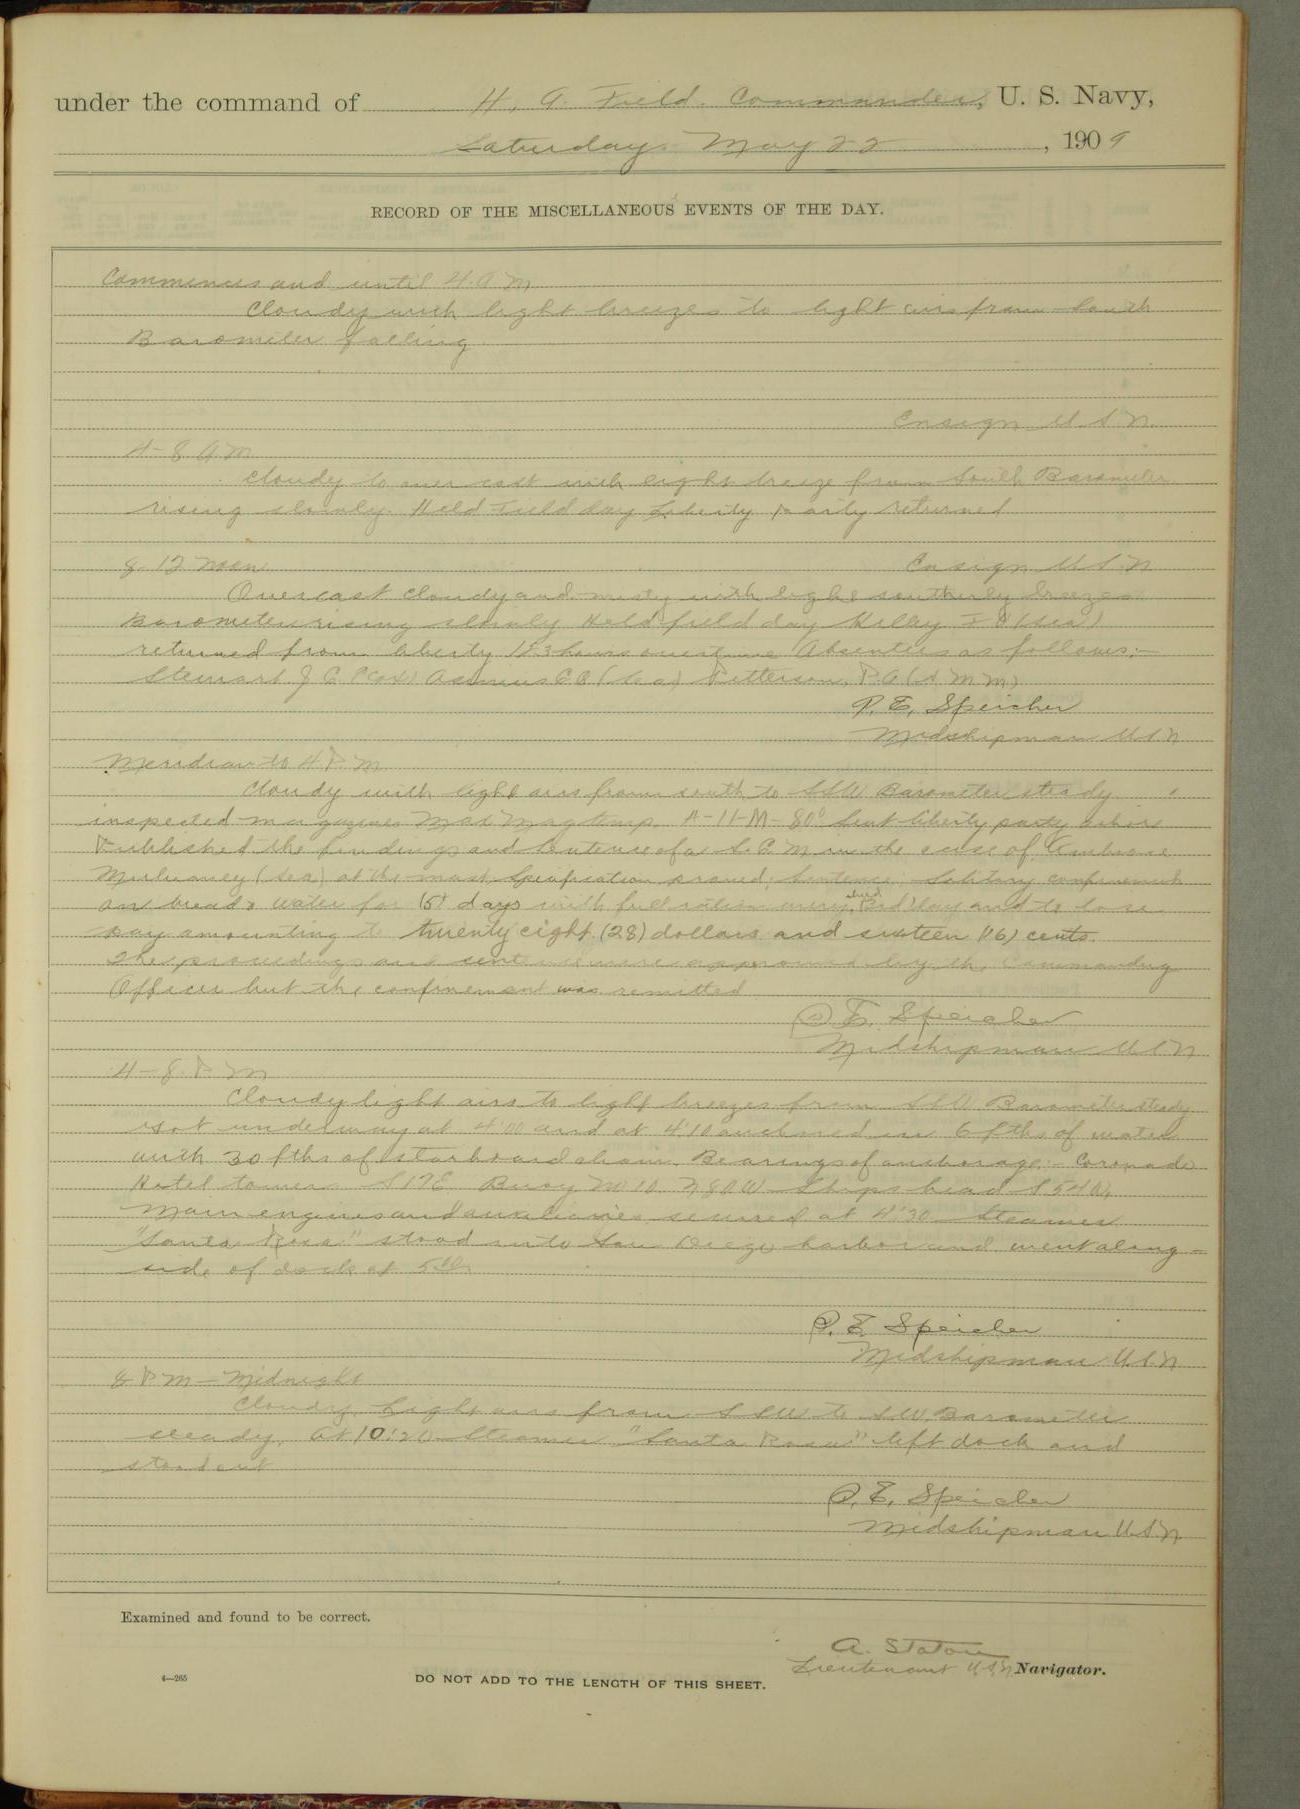 under the command of H. A. Field. Commander, U. S. Navy,
Saturday May 22, 1909
RECORD OF THE MISCELLANEOUS EVENTS OF THE DAY.
Commences and until 4 A M
Cloudy with light breezes to light airs from South
Barometer falling
Ensign U S N.
4-8 A M
Cloudy to over cast with light breeze from South Barometer
rising slowly. Held Field day Liberty party returned
Ensign U.S.N
8-12 Noon
Overcast cloudy and misty with light southerly breezes
Barometer rising slowly Held field day (Sea)
returned from liberty hours overtime Absentees as follows:-
Stewart J C (Cox) C C (Sea) Patterson, P. A (
P. E. Speicher
Midshipman U S N
Meridian to 4 P. M
Cloudy with light airs from south to SSW Barometer steady
inspected magazines Max Mag temp. A-11-M-80° Sent liberty party ashore
Published the findings and Sentence of a S. C. M in the case of Ambrose
(Sea) at the mast, Specification proved; Sentence; Solitary confinement
on bread & water for 15 days with full ration every third (3rd) day and to lose
pay amounting to twenty eight (28) dollars and sixteen (16) cents.
The proceedings and sentence were approved by the Commanding
Officer but the confinement was remitted
P. E. Speicher
Midshipman U S N
4-8 P M
Cloudy light airs to light breezes from SSW Barometer steady
Got underway at 4:00 and at 4:10 anchored in 6 fths of water
with 30 fths of starboard chain. Bearings of anchorage:- Coronado
Hotel tower S 17 E Buoy No 10 N 80 W Ships head S 54 W,
Main engines and auxiliaries secured at 4:30 Steamer
"Santa Rosa" stood into San Diego harbor and went along-
side of dock at
P. E. Speicher
Midshipman U.S.N
8 P M - Midnight
Cloudy. Light airs from SSW to SW Barometer
steady. At 10:20 Steamer "Santa Rosa" left dock and
stood out
P. E. Speicher
Midshipman U.S.N.
Examined and found to be correct.
A. Staton
Lieutenant U.S.N Navigator.
4—265
DO NOT ADD TO THE LENGTH OF THIS SHEET.